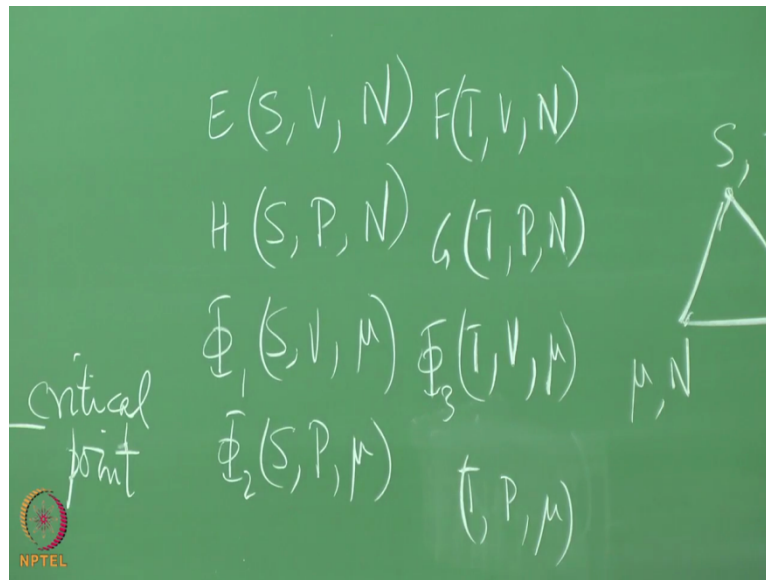 E(S, V, N) F(T, V, N)
H(S, P, N) G(T, P, N)
Φ₁(S, V, μ) Φ₃(T, V, μ)
Φ₂(S, P, μ) (T, P, μ)
critical
point
S,
μ, N
NPTEL